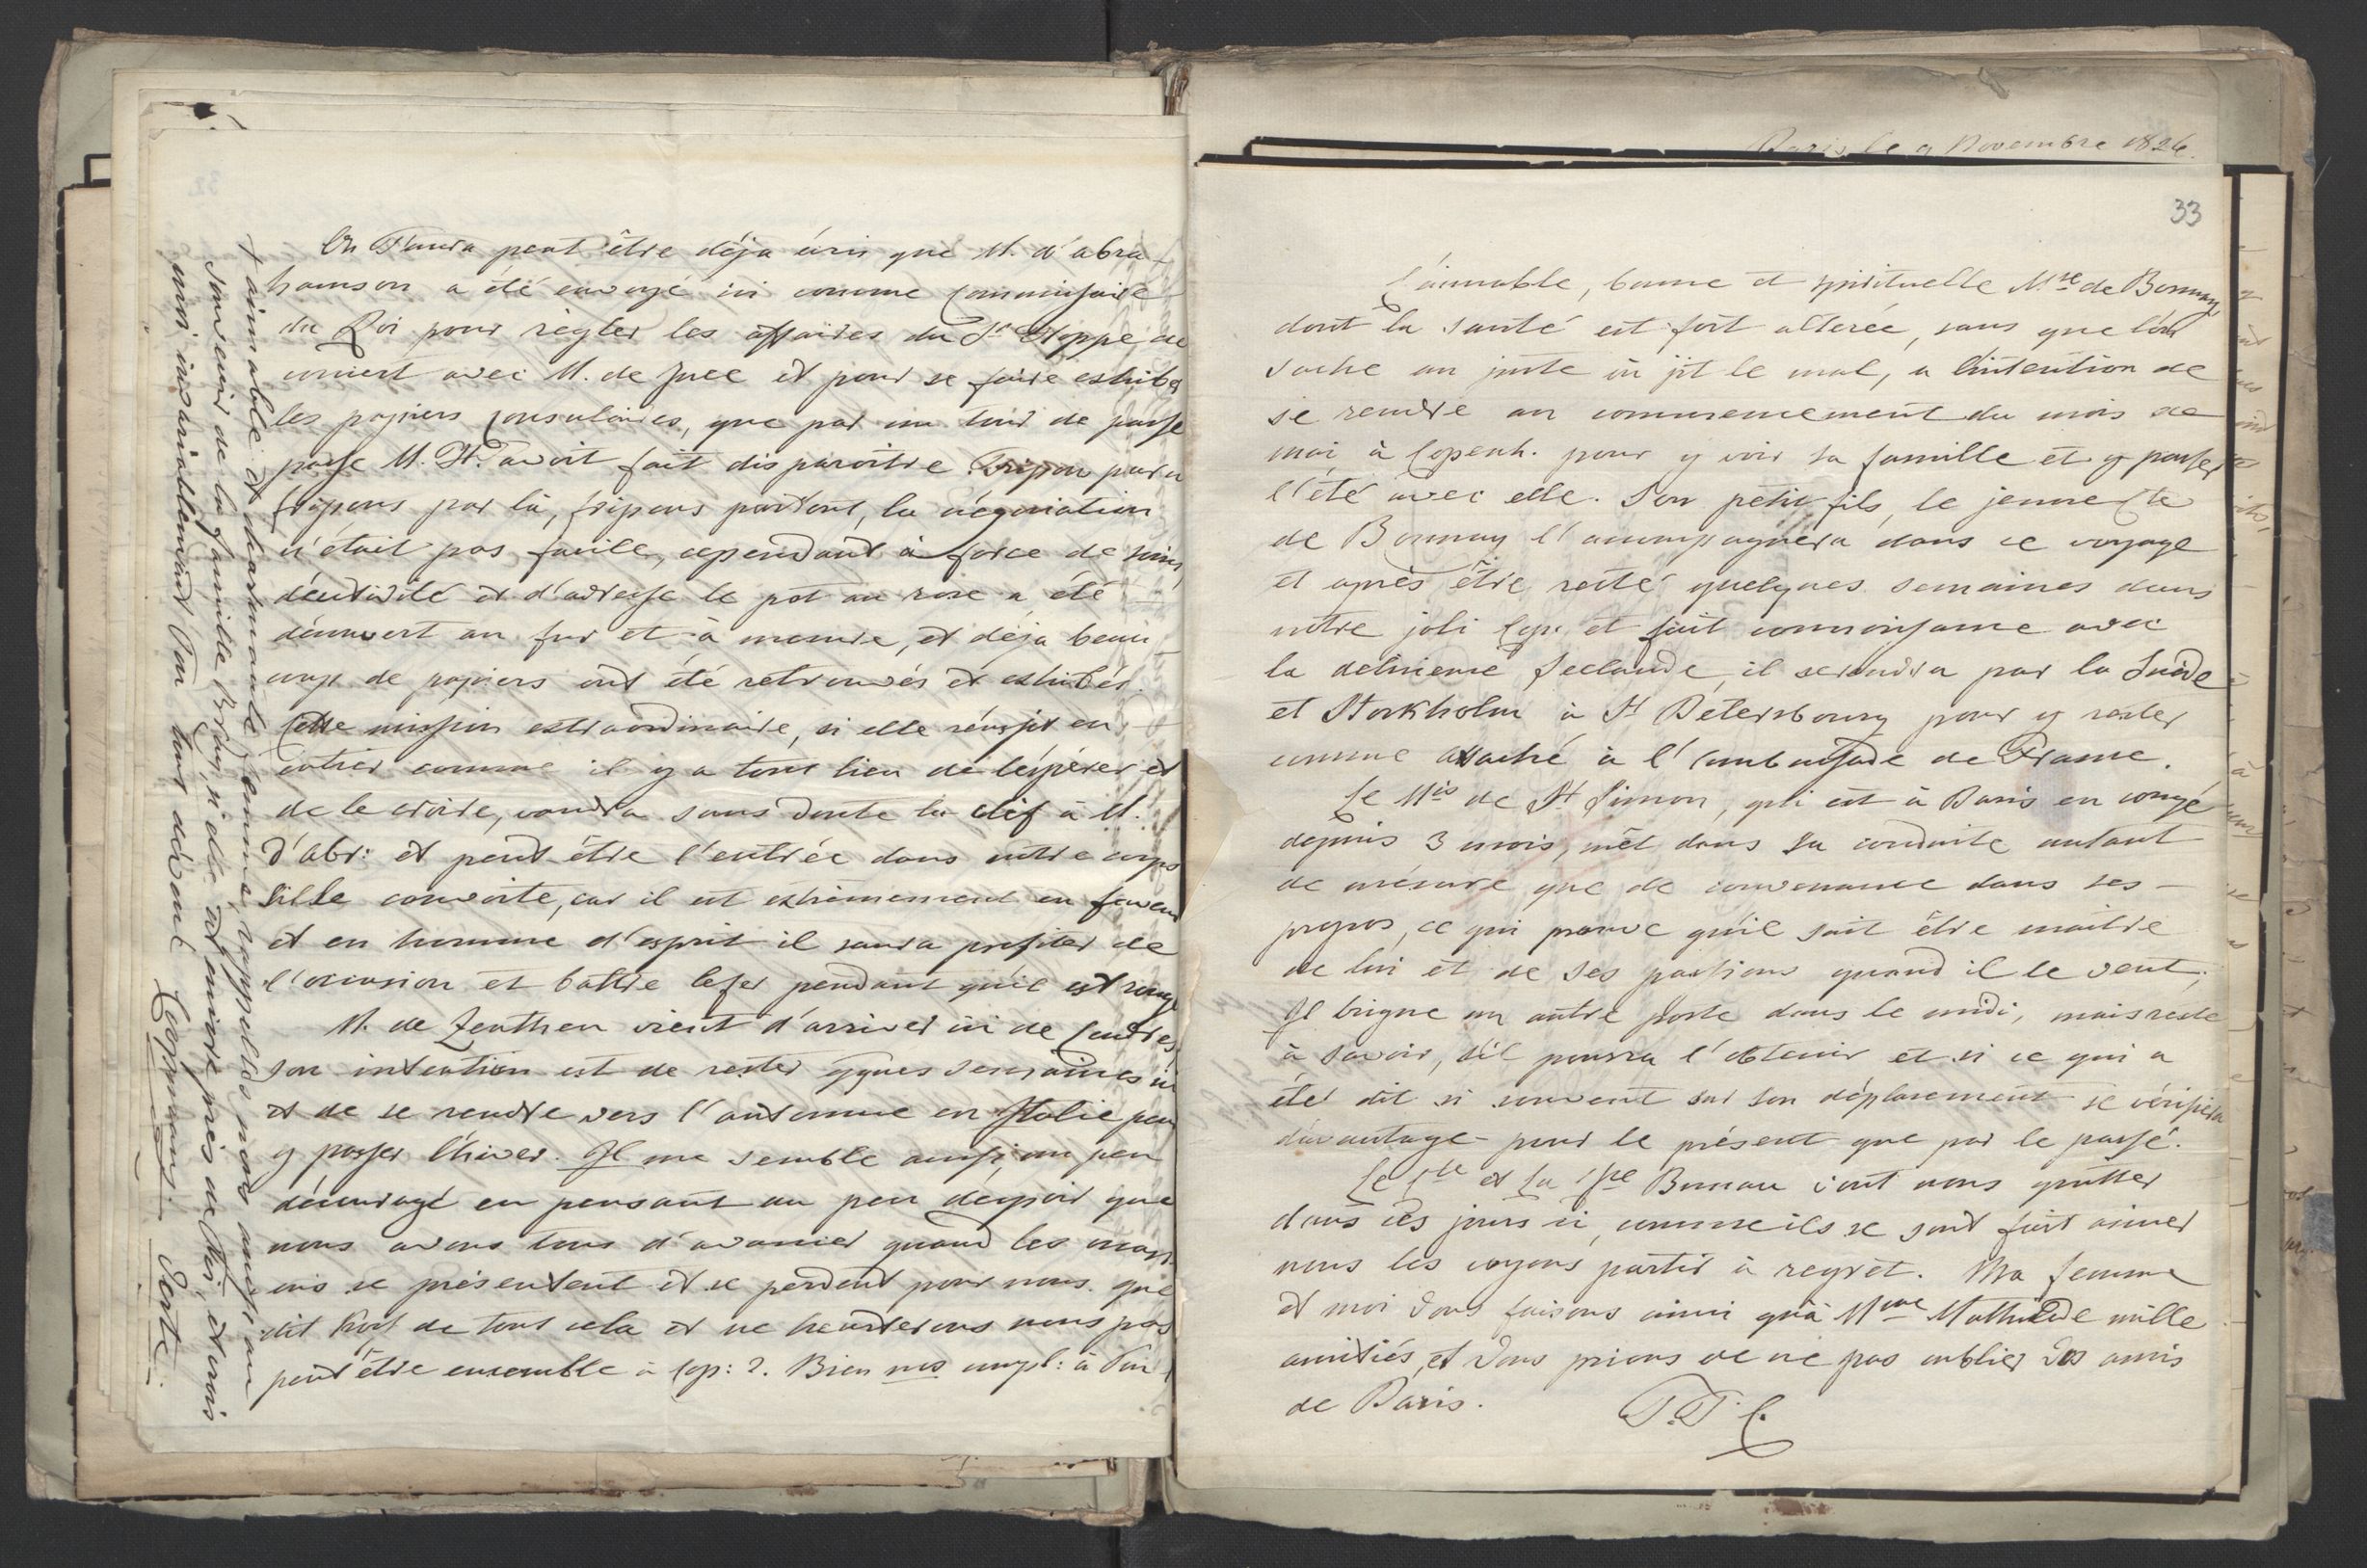 On t'aura peut être déja écris que M. d'abra-
hamson a été envoyé ici comme Commissaire
du Roi pour règler les affaires du Sr Hoppe de
concert avec M. de Juel et pour se faire exhiber
les papiers Consulaires, que par un tour de passe
passe M. H. avoit fait disparoître fripon par ci
fripons par là, fripons partout, la négociation
n'était pas facile, cependant à force de soins,
d'activité et d'adresse le pot au rose a été
découvert au fur et à mesure, et déja beau-
coup de papiers ont été retrouvés et exhibés.
Cette mission extraordinaire, si elle réussit en
entier comme il y a tout lieu de l'espérer et
de le croire, vaudra sans doute la clef à M.
d'Abr: et peut-être l'entrée dans notre corps
s'il le convoite, car il est extrêmement en faveur
et en homme d'esprit il saura profiter de
l'occasion et battre le fer pendant qu'il est rouge
M. de Zeuthen vient d'arriver ici de Londres
son intention est de rester qques semaines ici
et de se rendre vers l'automne en Italie pour
y passer l'hiver. Il me semble aussi un peu
découragé en pensant au peu d'espoir que
nous avons tous d'avancer quand les occasi-
ons se présentent et se perdent pour nous. que
dit de tout cela et ne nous pas
peut être ensemble à Cop: ?. Bien nos compl: à Ton
+ aimable et charmante femme, rappelles nous aussi au
souvenir de la famille si elle est encore près de Toi, et crois
moi invariablement Ton tout dévoué Coopmans. Verte.
Paris, le 9 Novembre 1826.
33
L'aimable, bonne et spirituelle Mse de Bonnay,
dont la santé est fort alterée, sans que l'on
sache au juste où git le mal, a l'intention de
se rendre au commencement du mois de
mai à Copenh. pour y voir sa famille et y passer
l'été avec elle. Son petit fils, le jeune Cte
de Bonnay l'accompagnera dans ce voyage
et après être resté quelques semaines dans
notre joli Cop. et fait connoissance avec
la delicieuse Seelande, il se rendra par la Suède
et Stockholm à St Petersbourg pour y rester
comme attaché à l'ambassade de France.
Le Mis de St Simon, qui est à Paris en congé
depuis 3 mois, met dans sa conduite autant
de mésure que de convenance dans ses
propos, ce qui prouve qu'il sait être maître
de lui et de ses passions quand il le veut;
Il brigue un autre poste dans le midi, mais reste
à savoir, s'il pourra l'obtenir et si ce qui a
été dit si souvent sur son déplacement se vérifiera
davantage pour le présent que par le passé.
Le Cte et la Csse Bunau vont nous quitter
dans ces jours ci, comme ils se sont fait aimer
nous les voyons partir à regrèt. Ma femme
et moi vous faisons ainsi qu'à Mme Mathilde mille
amitiés, et vous prions de ne pas oublier Vos amis
de Paris. T. T. C.